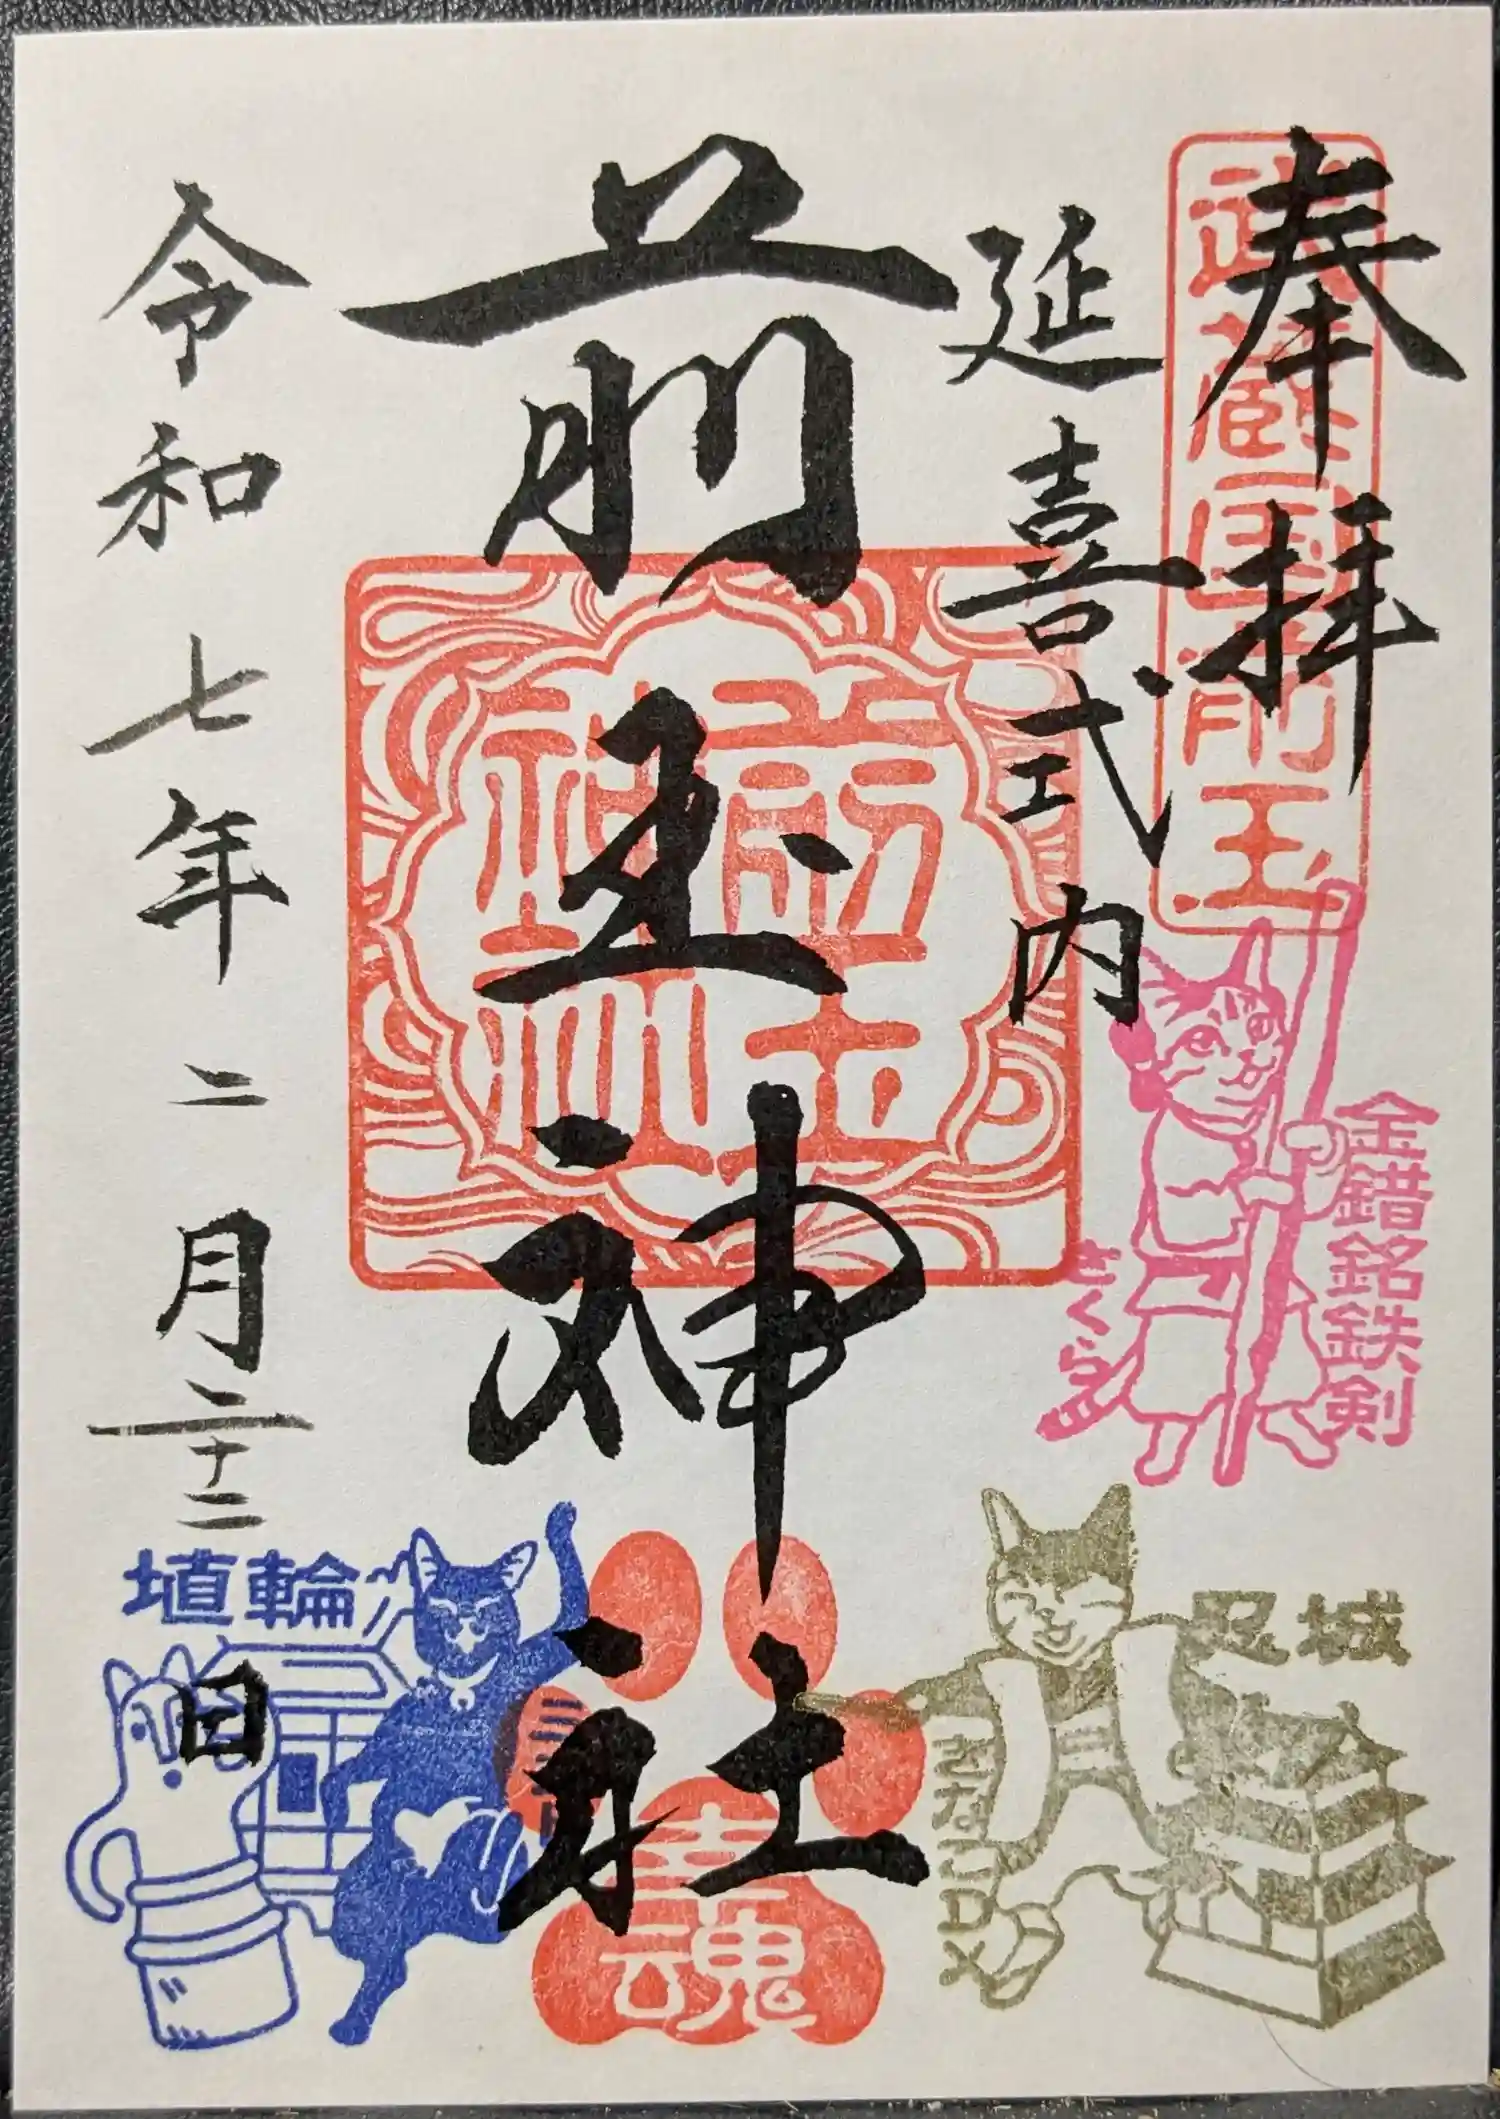 奉拝
武蔵国前玉
延喜式内
前玉神社
令和七年二月二十二日
金錯銘鉄剣
さくら
忍城
きなこDX
埴輪
幸魂